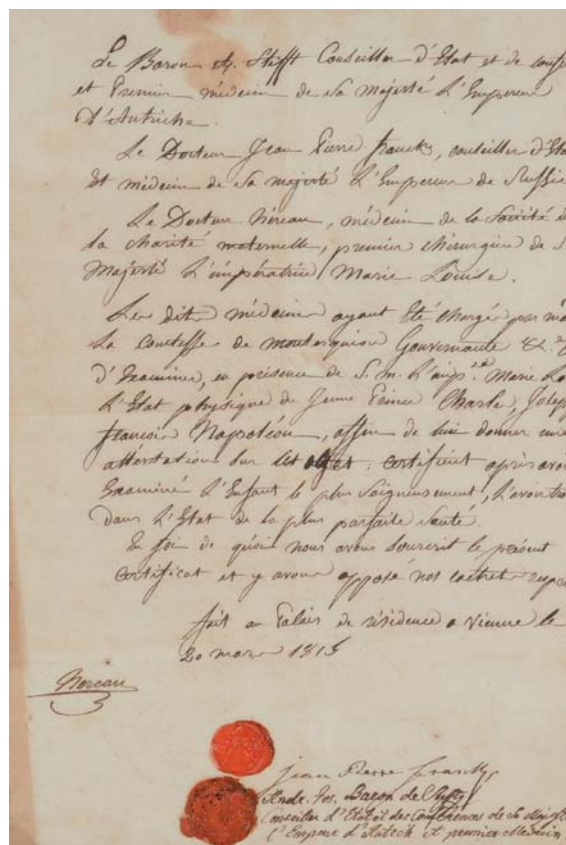 Le Baron A. Stifft Conseiller d'Etat et de confé
et Premier médecin de sa Majesté L'Empereur
D'Autriche.
Le Docteur Jean Pierre franck, conseiller d'Eta
Et médecin de sa majesté L'Empereur de Russie
Le Docteur héreau, médecin de la Société d
la charité maternelle, premier chirurgien de S
Majesté L'impératrice Marie Louise.
Les dits médecins ayant été chargés par m
La comtesse de montesquiou Gouvernante &.
d'Examiner, en présence de S. m. L'imp.ce Marie Lo
L'Etat physique du Jeune Prince Charle, Josep
francois Napoléon, affin de lui donner une
attestation sur cet objet: certifient après avo
Examiné L'Enfant le plus soigneusement, L'avoir tro
dans L'Etat de la plus parfaite Santé.
En foi de quoi nous avons souscrit le présent
certificat et y avons apposé nos cachets respe
fait au Palais de résidence a Vienne le
20 mars 1815
héreau
Jean Pierre Franck
Andr. Jos. Baron de Stifft
Conseiller d'Etat et des Conferences de Sa Majest
L'Empereur d'Autrich et premier Médecin